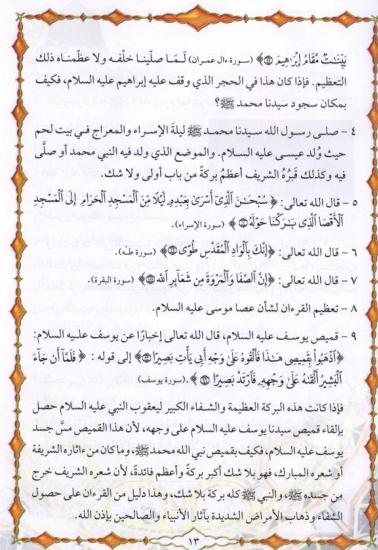 بَيِّنَـٰتٌ مَّقَامُ إِبْرَاهِيمَ ﴾ (سورة ءال عمران) لَـمَا صلَّينا خلْفه ولا عظَّمناه ذلك
التعظيم. فإذا كان هذا في الحجر الذي وقف عليه إبراهيم عليه السلام، فكيف
بمكان سجود سيدنا محمد ﷺ؟
٤ - صلى رسول الله سيدنا محمد ﷺ ليلةَ الإسراء والمعراج في بيت لحم
حيث وُلد عيسى عليه السلام. والموضع الذي ولد فيه النبي محمد أو صلَّى
فيه وكذلك قبرُهُ الشريف أعظمُ بركةً من باب أولى ولا شك.
٥ - قال الله تعالى: ﴿ سُبْحَـٰنَ الَّذِى أَسْرَىٰ بِعَبْدِهِ لَيْلًا مِّنَ الْمَسْجِدِ الْحَرَامِ إِلَى الْمَسْجِدِ
الْأَقْصَا الَّذِى بَـٰرَكْنَا حَوْلَهُ ﴾ (سورة الإسراء).
٦ - قال الله تعالى: ﴿ إِنَّكَ بِالْوَادِ الْمُقَدَّسِ طُوًى ﴾ (سورة طه).
٧ - قال الله تعالى: ﴿ إِنَّ الصَّفَا وَالْمَرْوَةَ مِن شَعَآئِرِ اللهِ ﴾ (سورة البقرة).
٨ - تعظيم القرءان لشأن عصا موسى عليه السلام.
٩ - قميص يوسف عليه السلام، قال الله تعالى إخبارًا عن يوسف عليه السلام:
﴿ اذْهَبُوا بِقَمِيصِى هَـٰذَا فَأَلْقُوهُ عَلَىٰ وَجْهِ أَبِى يَأْتِ بَصِيرًا ﴾ إلى قوله : ﴿ فَلَمَّا أَن جَاءَ
الْبَشِيرُ أَلْقَـٰهُ عَلَىٰ وَجْهِهِ فَارْتَدَّ بَصِيرًا ﴾. (سورة يوسف)
فإذا كانت هذه البركة العظيمة والشفاء الكبير ليعقوب النبي عليه السلام حصل
بإلقاء قميص سيدنا يوسف عليه السلام على وجهه، لأن هذا القميص مسَّ جسد
يوسف عليه السلام، فكيف بقميص نبي الله محمد ﷺ، وما كان من ءاثاره الشريفة
أو شعره المبارك، فهو بلا شك أكبر بركةً وأعظم فائدةً، لأن شعره الشريف خرج
من جسده ﷺ، والنبي ﷺ كله بركة بلا شك، وهذا دليل من القرءان على حصول
الشفاء وذهاب الأمراض الشديدة بآثار الأنبياء والصالحين بإذن الله.
١٣